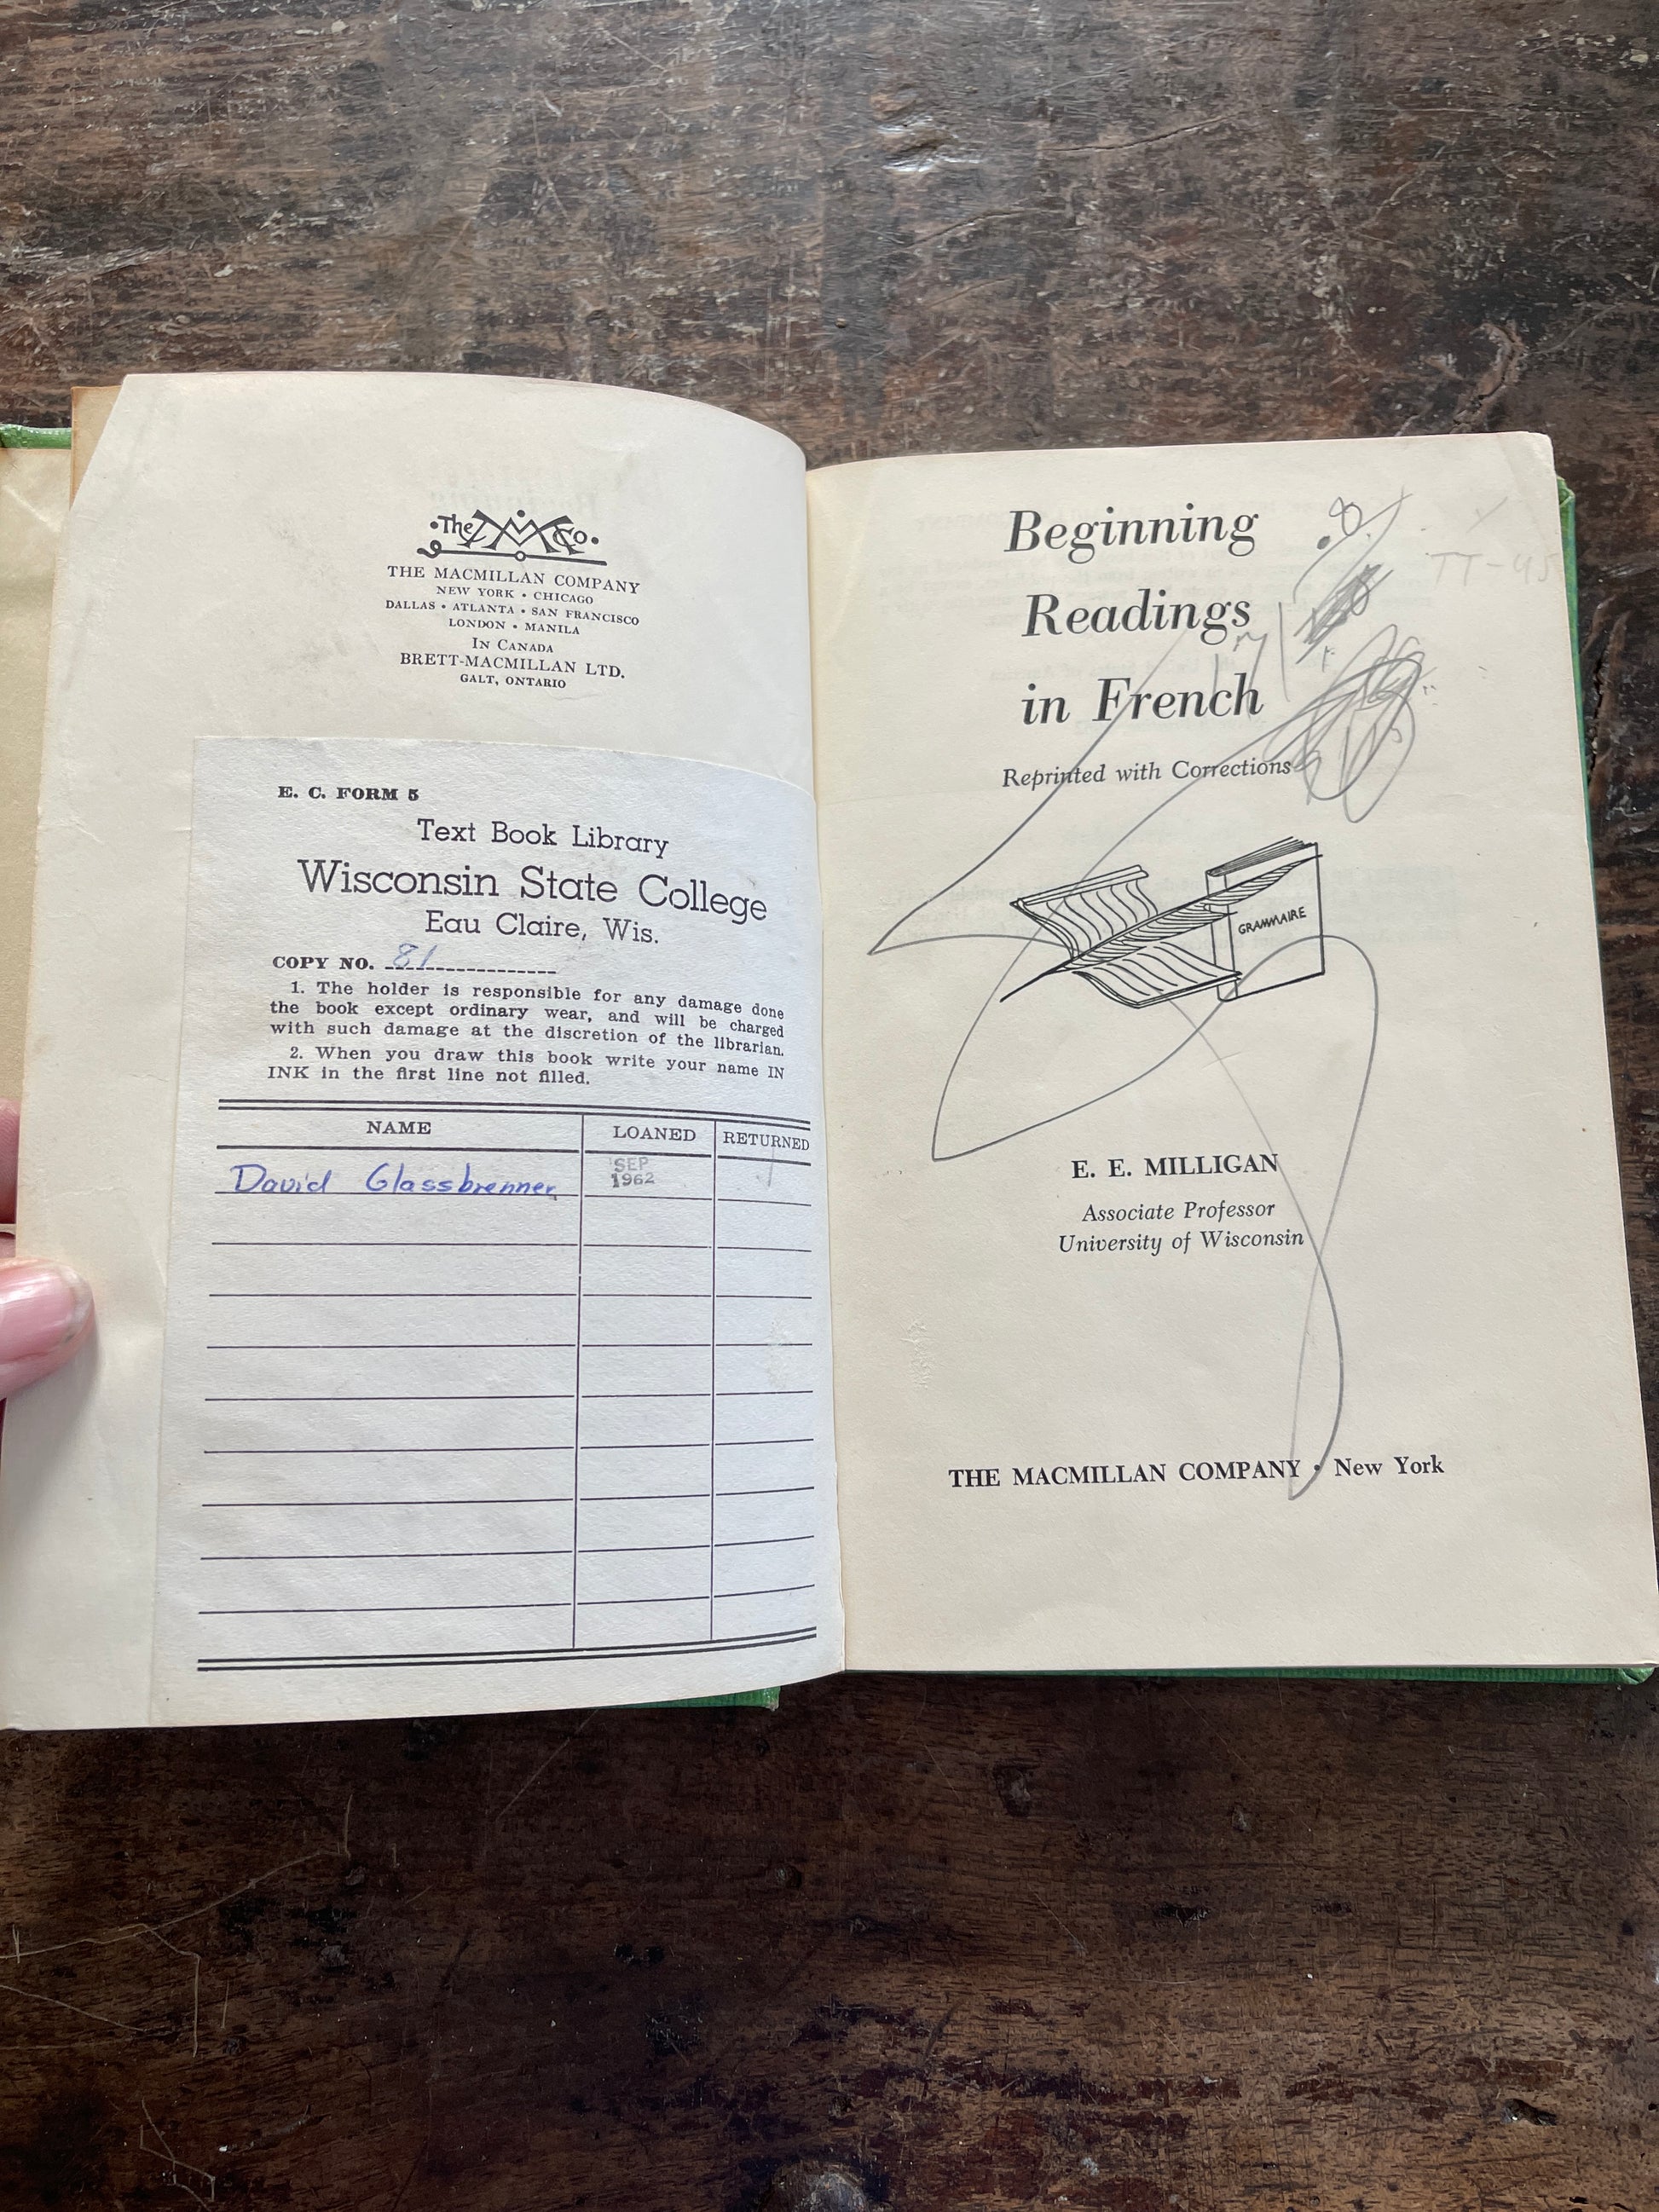 The M Co.
THE MACMILLAN COMPANY
NEW YORK • CHICAGO
DALLAS • ATLANTA • SAN FRANCISCO
LONDON • MANILA
IN CANADA
BRETT-MACMILLAN LTD.
GALT, ONTARIO
E. C. FORM 5
Text Book Library
Wisconsin State College
Eau Claire, Wis.
COPY NO. 81
1. The holder is responsible for any damage done
the book except ordinary wear, and will be charged
with such damage at the discretion of the librarian.
2. When you draw this book write your name IN
INK in the first line not filled.
NAME LOANED RETURNED
David Glassbrenner SEP 1962
Beginning
Readings
in French
Reprinted with Corrections
GRAMMAIRE
E. E. MILLIGAN
Associate Professor
University of Wisconsin
THE MACMILLAN COMPANY • New York